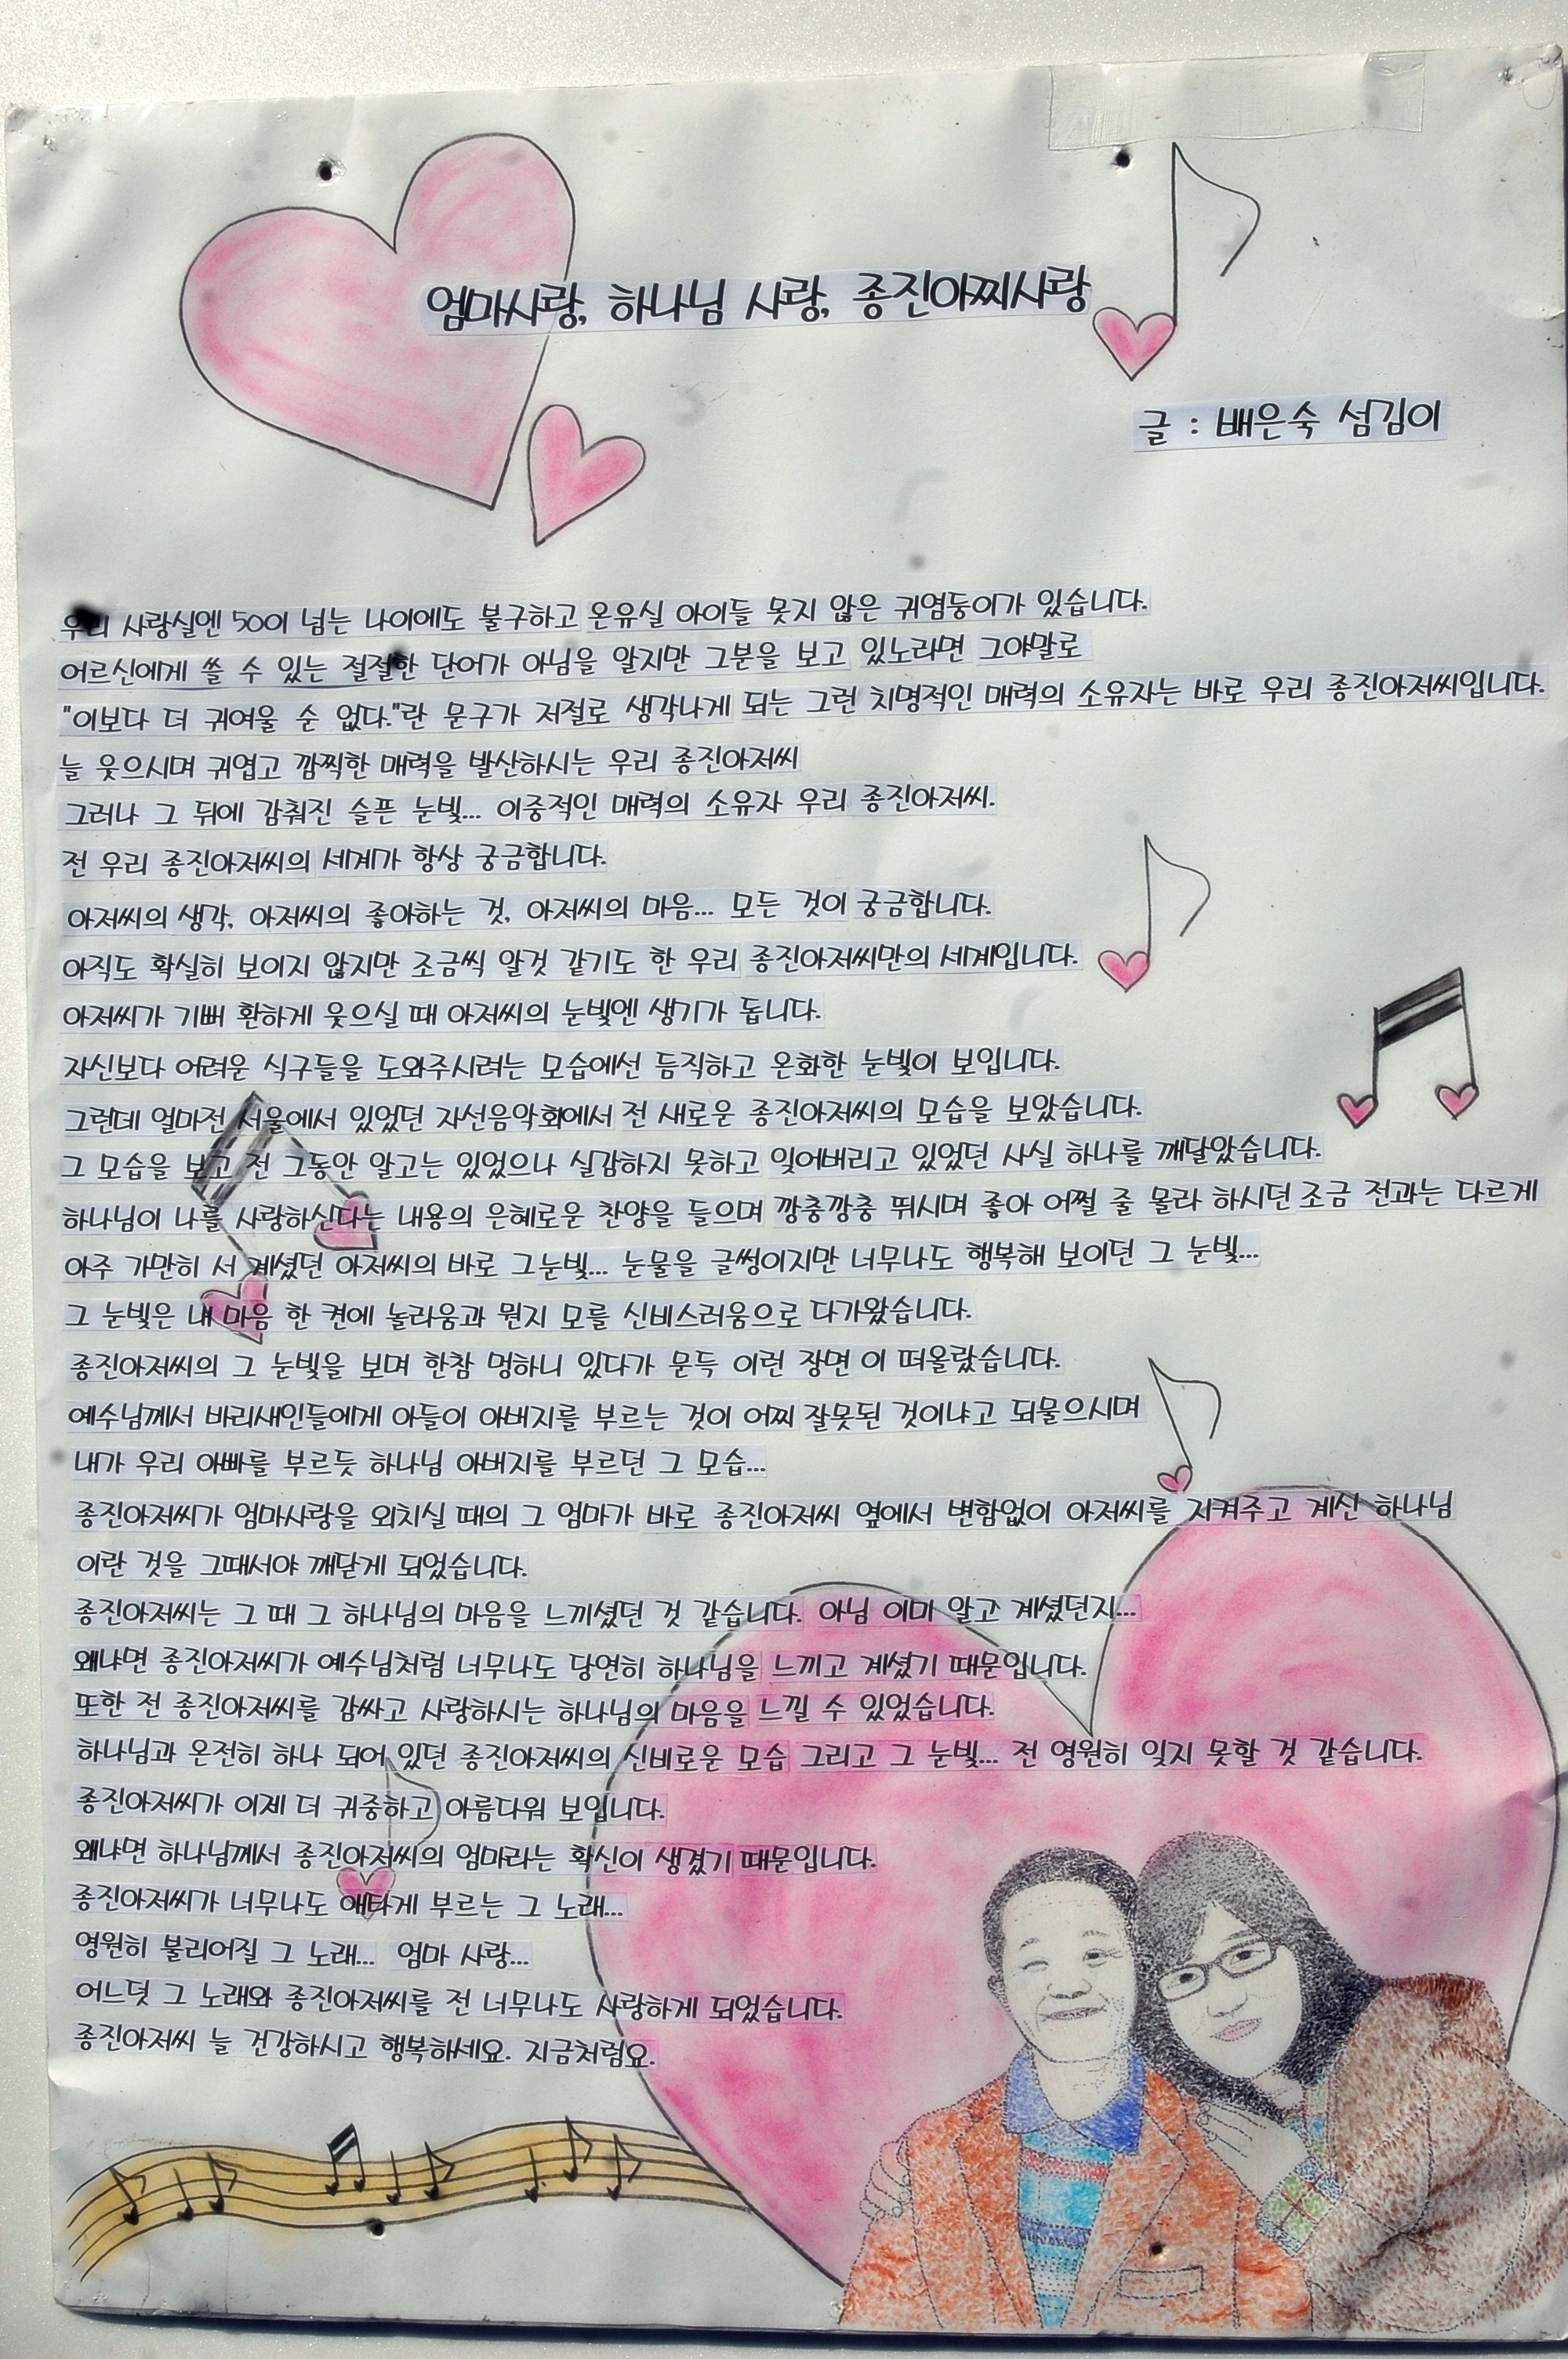 엄마사랑, 하나님 사랑, 종진아찌사랑
글 : 배은숙 섬김이
우리 사랑실엔 50이 넘는 나이에도 불구하고 온유실 아이들 못지 않은 귀염둥이가 있습니다.
어르신에게 쓸 수 있는 적절한 단어가 아님을 알지만 그분을 보고 있노라면 그야말로
"이보다 더 귀여울 순 없다."란 문구가 저절로 생각나게 되는 그런 치명적인 매력의 소유자는 바로 우리 종진아저씨입니다.
늘 웃으시며 귀엽고 깜찍한 매력을 발산하시는 우리 종진아저씨
그러나 그 뒤에 감춰진 슬픈 눈빛... 이중적인 매력의 소유자 우리 종진아저씨.
전 우리 종진아저씨의 세계가 항상 궁금합니다.
아저씨의 생각, 아저씨의 좋아하는 것, 아저씨의 마음... 모든 것이 궁금합니다.
아직도 확실히 보이지 않지만 조금씩 알것 같기도 한 우리 종진아저씨만의 세계입니다.
아저씨가 기뻐 환하게 웃으실 때 아저씨의 눈빛엔 생기가 돕니다.
자신보다 어려운 식구들을 도와주시려는 모습에선 듬직하고 온화한 눈빛이 보입니다.
그런데 얼마전 서울에서 있었던 자선음악회에서 전 새로운 종진아저씨의 모습을 보았습니다.
그 모습을 보고 전 그동안 알고는 있었으나 실감하지 못하고 잊어버리고 있었던 사실 하나를 깨달았습니다.
하나님이 나를 사랑하신다는 내용의 은혜로운 찬양을 들으며 깡충깡충 뛰시며 좋아 어쩔 줄 몰라 하시던 조금 전과는 다르게
아주 가만히 서 계셨던 아저씨의 바로 그눈빛... 눈물을 글썽이지만 너무나도 행복해 보이던 그 눈빛...
그 눈빛은 내 마음 한 켠에 놀라움과 뭔지 모를 신비스러움으로 다가왔습니다.
종진아저씨의 그 눈빛을 보며 한참 멍하니 있다가 문득 이런 장면 이 떠올랐습니다.
예수님께서 바리새인들에게 아들이 아버지를 부르는 것이 어찌 잘못된 것이냐고 되물으시며
내가 우리 아빠를 부르듯 하나님 아버지를 부르던 그 모습...
종진아저씨가 엄마사랑을 외치실 때의 그 엄마가 바로 종진아저씨 옆에서 변함없이 아저씨를 지켜주고 계신 하나님
이란 것을 그때서야 깨닫게 되었습니다.
종진아저씨는 그 때 그 하나님의 마음을 느끼셨던 것 같습니다. 아님 이마 알고 계셨던지...
왜냐면 종진아저씨가 예수님처럼 너무나도 당연히 하나님을 느끼고 계셨기 때문입니다.
또한 전 종진아저씨를 감싸고 사랑하시는 하나님의 마음을 느낄 수 있었습니다.
하나님과 온전히 하나 되어 있던 종진아저씨의 신비로운 모습 그리고 그 눈빛... 전 영원히 잊지 못할 것 같습니다.
종진아저씨가 이제 더 귀중하고 아름다워 보입니다.
왜냐면 하나님께서 종진아저씨의 엄마라는 확신이 생겼기 때문입니다.
종진아저씨가 너무나도 애타게 부르는 그 노래...
영원히 불리어질 그 노래... 엄마 사랑...
어느덧 그 노래와 종진아저씨를 전 너무나도 사랑하게 되었습니다.
종진아저씨 늘 건강하시고 행복하세요. 지금처럼요.